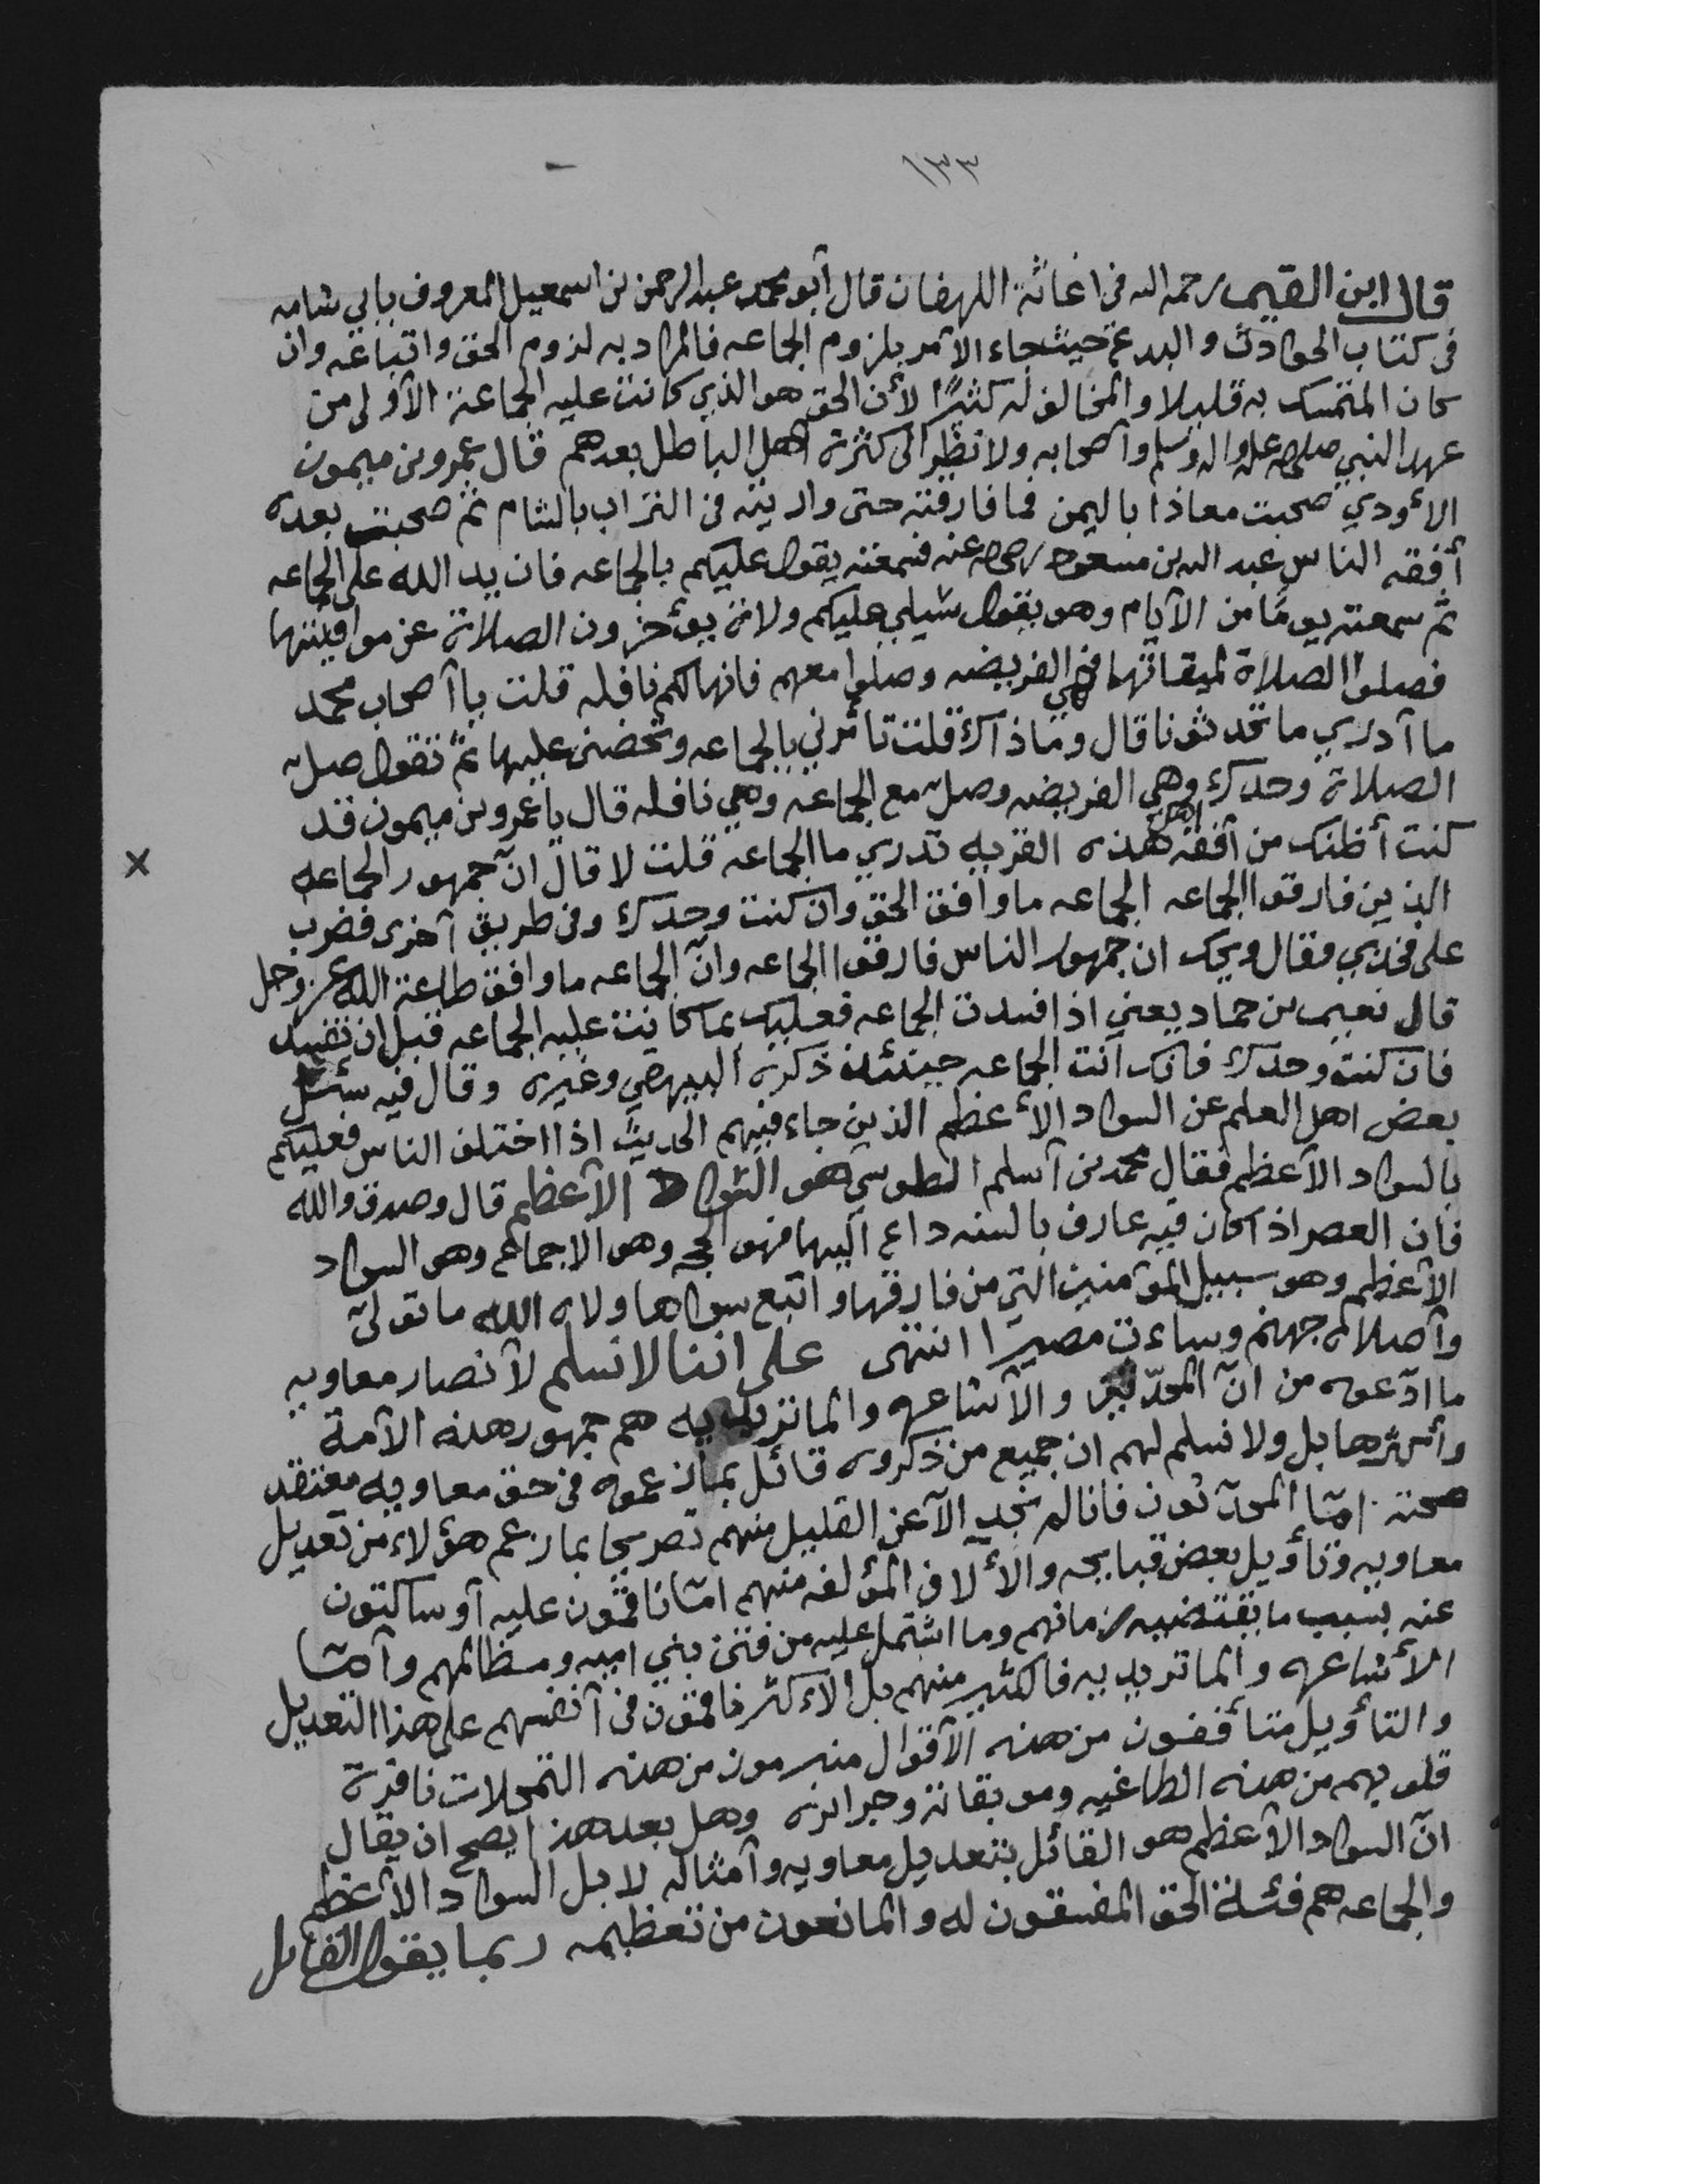 ١٣٣
قال ابن القيم رحمه الله فى اغاثة اللهفان قال أبو محمد عبد الرحمن بن اسمعيل المعروف بابي شامه
فى كتاب الحوادث والبدع حيث جاء الأمر بلزوم الجماعه فالمراد به لزوم الحق واتباعه وان
كان المتمسك به قليلا والمخالف له كثيرًا لأن الحق هو الذي كانت عليه الجماعة الأولى من
عهد النبي صلى الله عليه واله وسلم وأصحابه ولا نظر الى كثرة اهل الباطل بعدهم قال عمرو بن ميمون
الأودي صحبت معاذا باليمن فما فارقته حتى واريته فى التراب بالشام ثم صحبت بعده
أفقه الناس عبد الله بن مسعود رضى الله عنه فسمعته يقول عليكم بالجماعه فان يد الله على الجماعه
ثم سمعته يومًا من الأيام وهو يقول سيلي عليكم ولاة يؤخرون الصلاة عن مواقيتها
فصلوا الصلاة لميقاتها فهى الفريضه وصلوا معهم فانها لكم نافله قلت يا أصحاب محمد
ما أدري ما تحدثونا قال وما ذاك قلت تأمرني بالجماعه وتحضنى عليها ثم تقول صل
الصلاة وحدك وهي الفريضه وصل مع الجماعه وهي نافله قال يا عمرو بن ميمون قد
كنت أظنك من أفقه اهل هذه القريه تدري ما الجماعه قلت لا قال انّ جمهور الجماعه
الذين فارقوا الجماعه الجماعه ما وافق الحق وان كنت وحدك وفى طريق أخرى فضرب
على فخذي وقال ويحك ان جمهور الناس فارقوا الجماعه وانّ الجماعه ما وافق طاعة الله عز وجل
قال نعيم بن حماد يعني اذا فسدت الجماعه فعليك بما كانت عليه الجماعه قبل ان تفسد
فان كنت وحدك فانك أنت الجماعه حينئذ ذكره البيهقي وغيره وقال فيه سئل
بعض اهل العلم عن السواد الأعظم الذين جاء فيهم الحديث اذا اختلف الناس فعليكم
بالسواد الأعظم فقال محمد بن أسلم الطوسي هو السواد الأعظم قال وصدق والله
فان العصر اذا كان فيه عارف بالسنه داع اليها فهو الحجه وهو الاجماع وهو السواد
الأعظم وهو سبيل المؤمنين التي من فارقها واتبع سواها ولاه الله ما تولى
وأصلاه جهنم وساءت مصيرا انتهى على اننا لا نسلم لأنصار معاويه
ما ادّعوه من انّ المحدّثين والأشاعره والماتريديه هم جمهور هذه الأمة
وأكثرها بل ولا نسلم لهم ان جميع من ذكروه قائل بما زعموه فى حق معاويه معتقد
صحته امّا المحدّثون فانا لم نجد الاّ عن القليل منهم تصريحا بما زعم هؤلاء من تعديل
معاويه وتأويل بعض قبايحه والألاف المؤلفه منهم امّا ناقمون عليه أو ساكتون
عنه بسبب ما يقتضيه زمانهم وما اشتمل عليه من فتن بني اميه ومظالمهم وأمّا
الأشاعره والماتريديه فالكثير منهم بل الأكثر ناقمون فى أنفسهم على هذا التعديل
والتأويل متأففون من هذه الأقوال متبرمون من هذه التمحلات نافرة
قلوبهم من هذه الطاغيه وموبقاته وجرائره وهل بعد هذا يصح ان يقال
انّ السواد الأعظم هو القائل بتعديل معاويه وأمثاله لا بل السواد الأعظم
والجماعه هم فئة الحق المفسقون له والمانعون من تعظيمه ربما يقول القائل